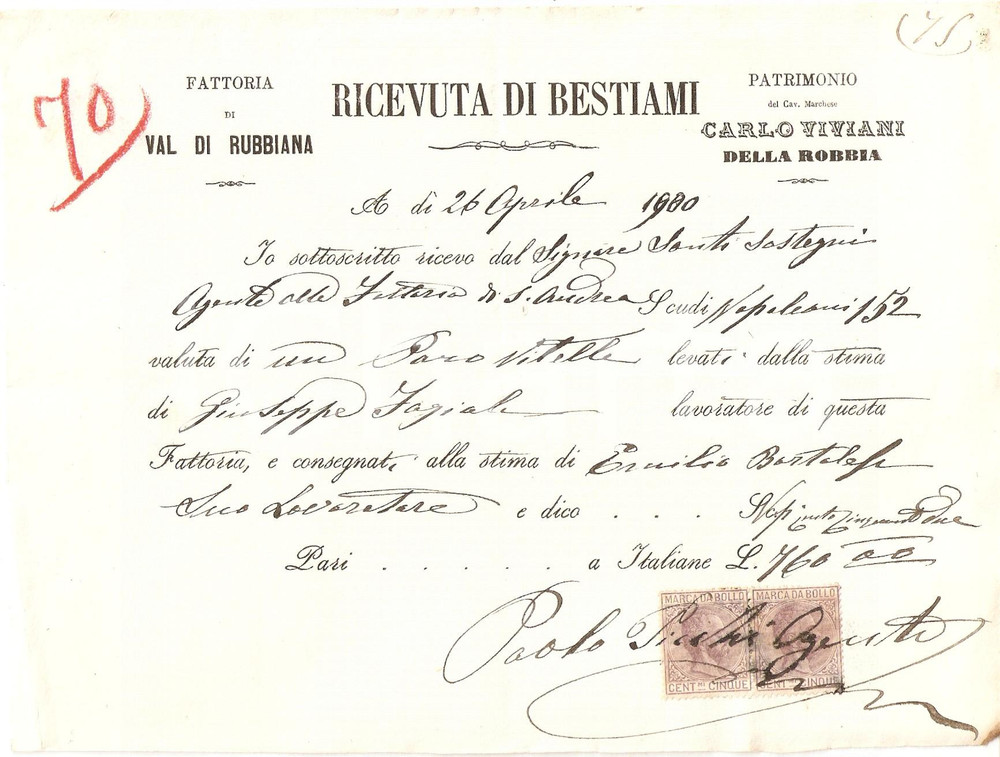 (75)
70
FATTORIA
DI
VAL DI RUBBIANA
RICEVUTA DI BESTIAMI
PATRIMONIO
del Cav. Marchese
CARLO VIVIANI
DELLA ROBBIA
A dì 26 Aprile 1900
Io sottoscritto ricevo dal Signore Santi Sostegni
Agente alla Fattoria di S. Andrea Scudi Napoleoni 152
valuta di un Paro Vitelle levati dalla stima
di Giuseppe lavoratore di questa
Fattoria, e consegnati alla stima di Emilio Bartolesi
Suo Lavoratore e dico . . . Nap cento cinquantadue
Pari . . . . . a Italiane L. 760 00
MARCA DA BOLLO MARCA DA BOLLO
Paolo Agente
CENT.MI CINQUE CENT.MI CINQUE